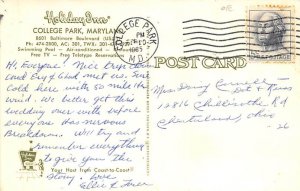 Holiday Inn
COLLEGE PARK, MARYLAND
8601 Baltimore Boulevard
Ph: 474-2800, AC: 301, TWX: 301-
Swimming Pool - Air-conditioned -
Free TV - Free Teletype Reservations
COLLEGE PARK
PM
1965
MD.
POST CARD
Hi Everyone! Nice
and met us.
Cold here with 50 mile
wind. We better get this
wedding over with before
everyone has nervous
Breakdown. Will try and
remember everything
to give you the
story. Love
Your Host from Coast-to-Coast
Miss Jenny
12816 Chillicothe Rd
Chesterland, Ohio
26